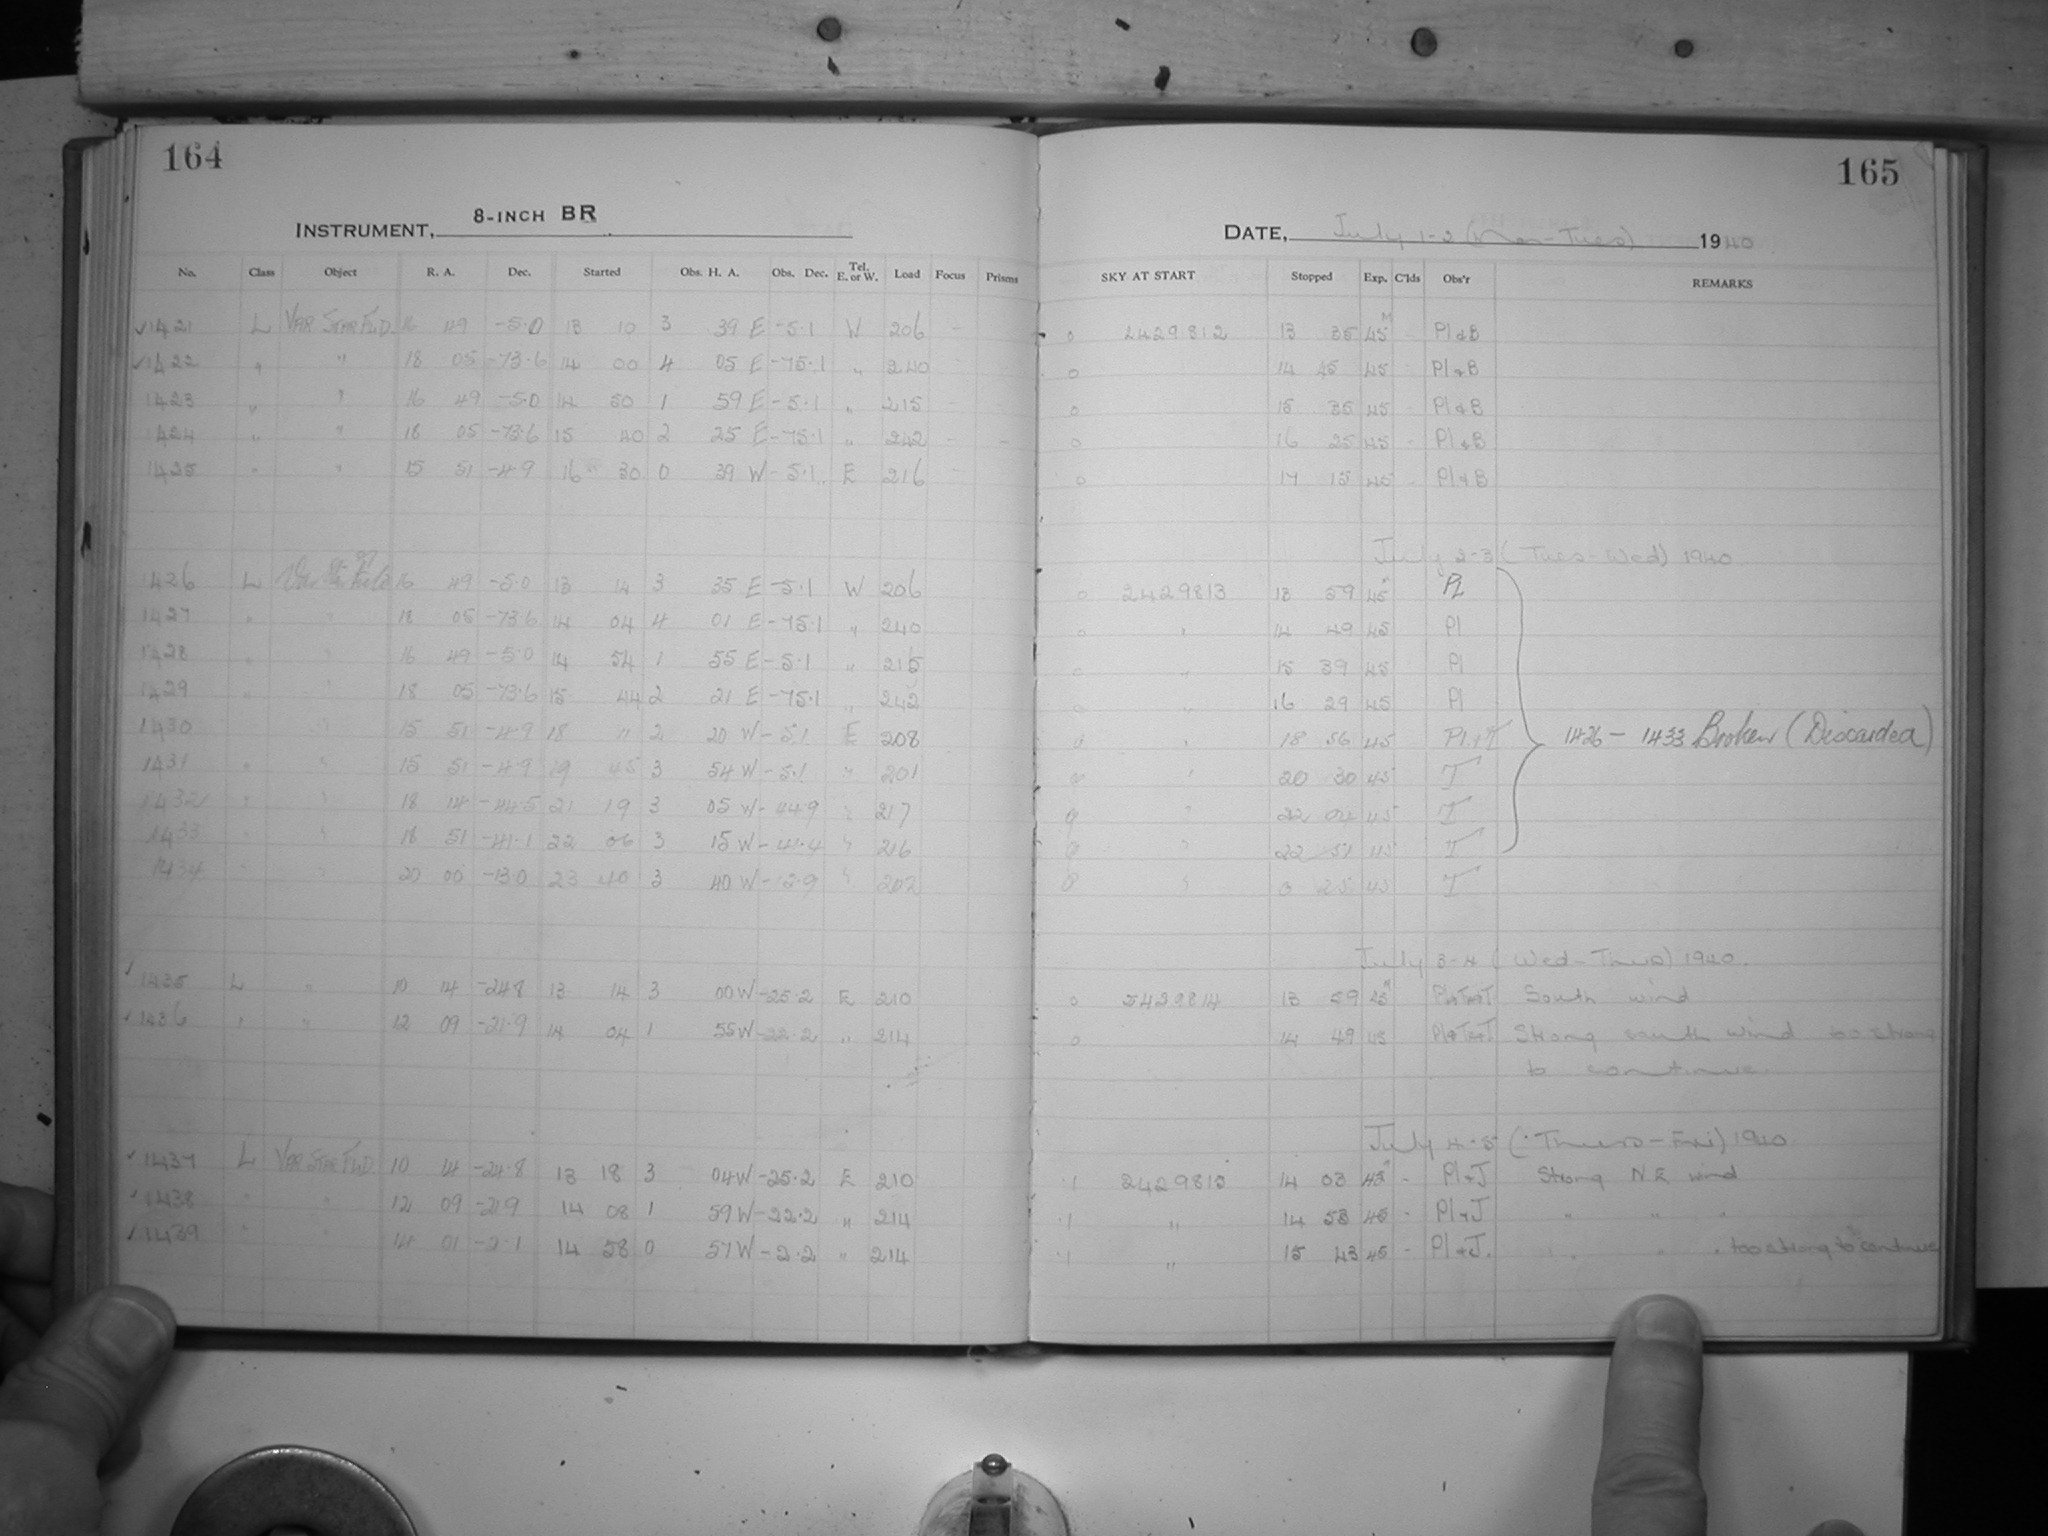 164
INSTRUMENT, 8-INCH BR
No. Class Object R. A. Dec. Started Obs. H. A. Obs. Dec. Tel. E. or W. Load Focus Prisms
✓1421 L VAR STAR FLD. 16 49 -5.0 13 10 3 39 E -5.1 W 206 -
✓1422 " " 18 05 -73.6 14 00 4 05 E -75.1 " 240
1423 " " 16 49 -5.0 14 50 1 59 E -5.1 " 215 -
1424 " " 18 05 -73.6 15 40 2 25 E -75.1 " 242 - -
1425 " " 15 51 -4.9 16 30 0 39 W -5.1 E 216
1426 L 16 49 -5.0 13 14 3 35 E -5.1 W 206
1427 " " 18 05 -73.6 14 04 4 01 E -75.1 " 240
1428 " " 16 49 -5.0 14 54 1 55 E -5.1 " 215
1429 " " 18 05 -73.6 15 44 2 21 E -75.1 " 242
1430 " 15 51 -4.9 18 11 2 20 W -5.1 E 208
1431 " " 15 51 -4.9 19 45 3 54 W -5.1 " 201
1432 " " 18 14 -44.5 21 19 3 05 W -44.9 " 217
1433 " " 18 51 -41.1 22 06 3 15 W -41.4 " 216
1434 " " 20 00 -13.0 23 40 3 40 W -12.9 " 202
✓1435 L " 10 14 -24.8 13 14 3 00 W -25.2 E 210
✓1436 " " 12 09 -21.9 14 04 1 55 W -22.2 " 214
✓1437 L VAR STAR FLD. 10 14 -24.8 13 18 3 04 W -25.2 E 210
✓1438 " " 12 09 -21.9 14 08 1 59 W -22.2 " 214
✓1439 " " 14 01 -2.1 14 58 0 57 W -2.2 " 214
165
DATE, July 1-2 (Mon-Tues) 1940
SKY AT START Stopped Exp. C'lds Obs'r REMARKS
0 2429812 13 55 45M Pl & B
0 14 45 45 Pl & B
0 15 35 45 - Pl & B
0 16 25 45 - Pl & B
0 17 15 45 - Pl & B
July 2-3 (Tues-Wed) 1940
0 2429813 13 59 45 Pl
0 " 14 49 45 Pl
0 " 15 39 45 Pl
0 " 16 29 45 Pl
0 " 18 56 45 Pl & T 1426 - 1433 Broken (Discarded)
0 " 20 30 45 T
0 " 22 04 45 T
0 " 22 51 45 T
0 " 0 25 45 T
July 3-4 (Wed-Thurs) 1940.
0 5429814 13 59 45M South wind
0 14 49 45 Strong south wind too strong
to continue.
July 4-5 (Thurs-Fri) 1940
.1 2429815 14 03 45 - Pl & J Strong N.E. wind
.1 " 14 53 45 - Pl & J " " "
.1 " 15 43 45 - Pl & J. " " " too strong to continue